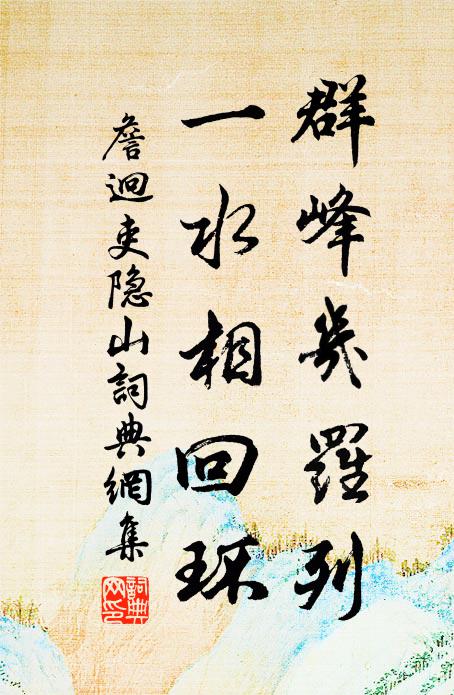 群峰幾羅列
一水相回环
詹迥吏隐山詞典網集
詞典